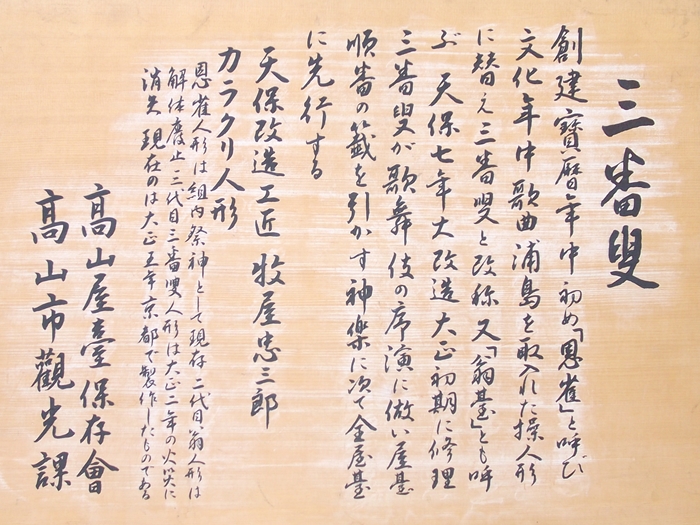 三番叟
創建寶暦年中 初め「恩雀」と呼び
文化年中歌曲浦島を取入れた操人形
に替え三番叟と改称 又「翁臺」とも呼
ぶ 天保七年大改造大正初期に修理
三番叟が歌舞伎の序演に倣い屋臺
順番の籤を引かす神楽に次で全屋臺
に先行する
天保改造工匠 牧屋忠三郎
カラクリ人形
恩雀人形は組内祭神として現存 二代目翁人形は
解体廃止 三代目三番叟人形は大正二年の火災に
消失 現在のは大正五年京都で製作したものである
高山屋臺保存會
高山市觀光課